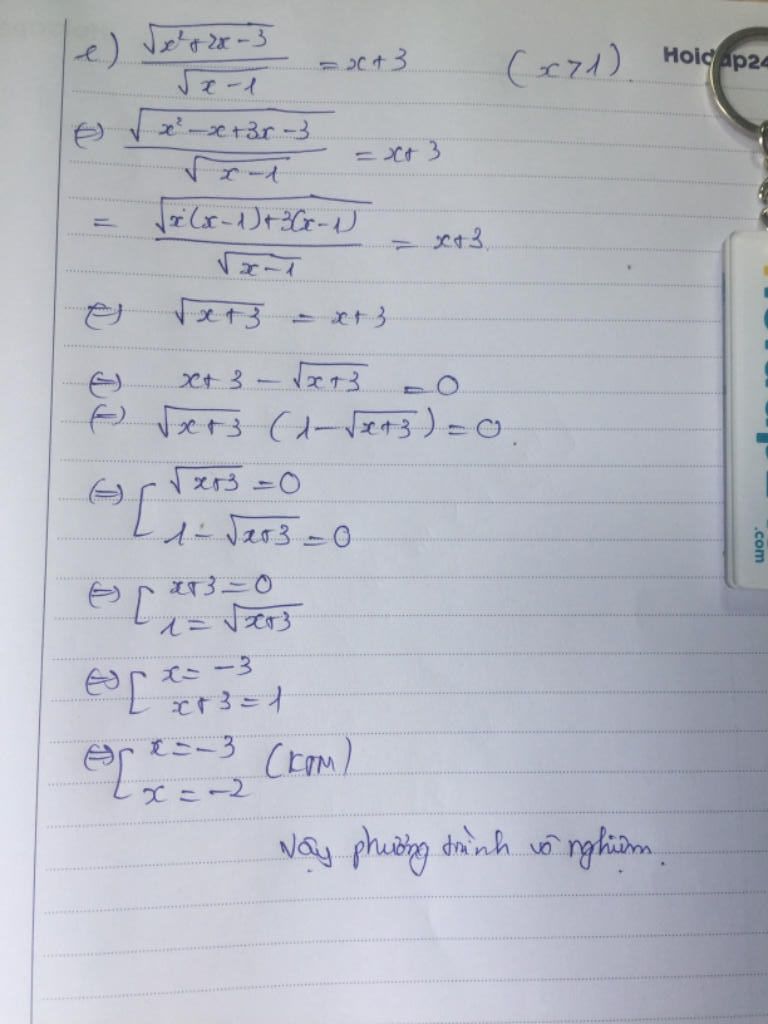 e) \frac{\sqrt{x²+2x-3}}{\sqrt{x-1}} = x+3 (x>1).
Hoidap24
⇔ \frac{\sqrt{x²-x+3x-3}}{\sqrt{x-1}} = x+3
= \frac{\sqrt{x(x-1)+3(x-1)}}{\sqrt{x-1}} = x+3.
⇔ \sqrt{x+3} = x+3
⇔ x+3 - \sqrt{x+3} = 0
⇔ \sqrt{x+3} (1-\sqrt{x+3}) = 0.
⇔ [ \sqrt{x+3} = 0
1 - \sqrt{x+3} = 0
⇔ [ x+3 = 0
1 = \sqrt{x+3}
⇔ [ x = -3
x+3 = 1
⇔ [ x = -3 (KTM)
x = -2
Vậy phương trình vô nghiệm.
.com